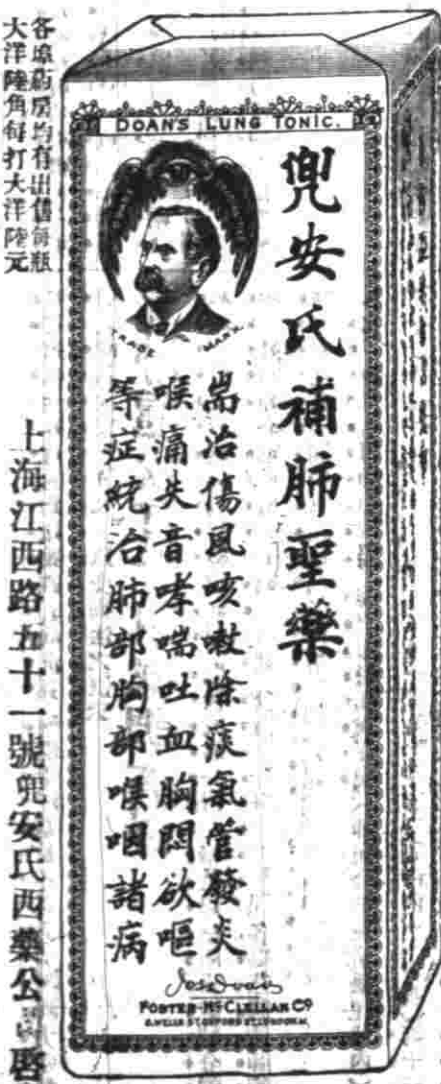 DOAN'S LUNG TONIC.
TRADE MARK.
兜安氏補肺聖藥
耑治傷風咳嗽除痰氣管發炎
喉痛失音哮喘吐血胸悶欲嘔
等症統治肺部胸部喉咽諸病
FOSTER-McCLELLAN Co
各埠葯房均有出售每瓶
大洋陸角每打大洋陸元
上海江西路五十一號兜安氏西藥公司啓